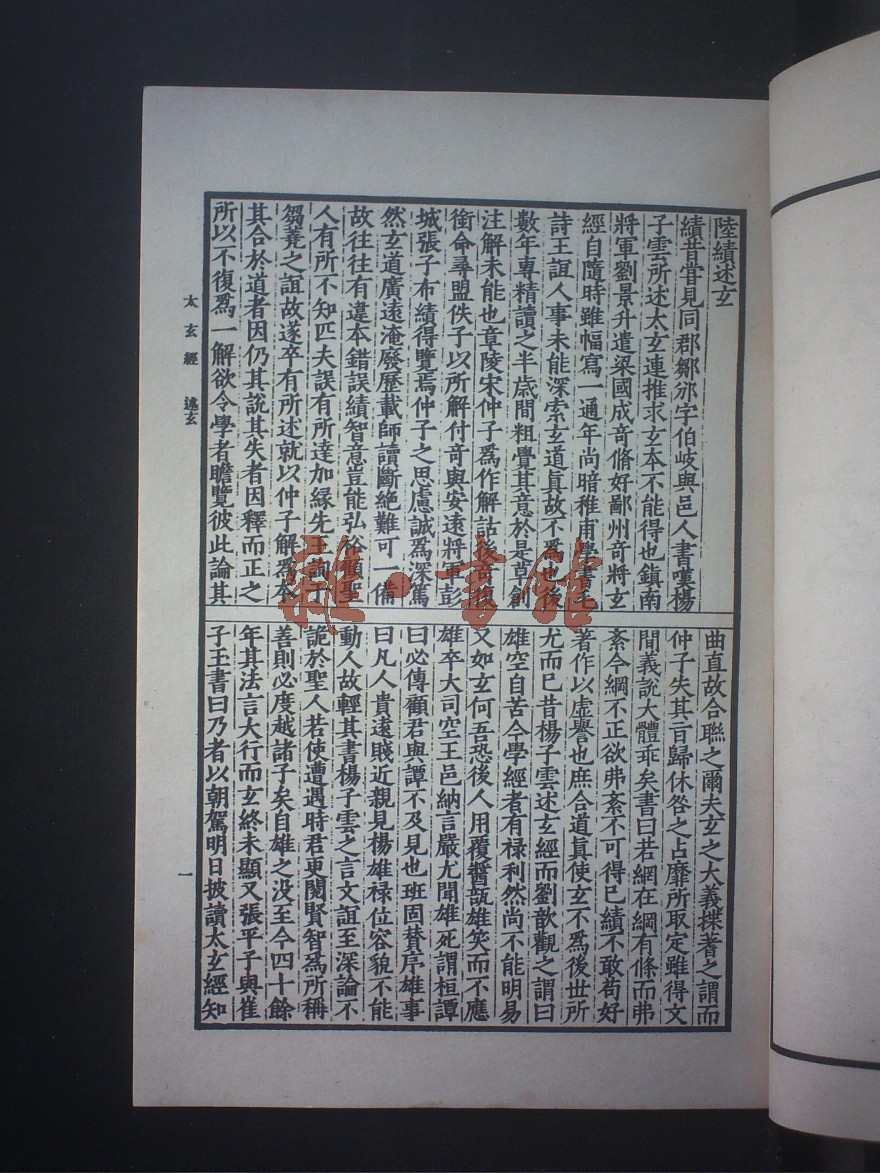 陸績述玄
績昔甞見同郡鄒邠字伯岐與邑人書嘆楊
子雲所述太玄連推求玄本不能得也鎮南
將軍劉景升遣梁國成奇脩好鄙州奇將玄
經自隨時雖幅寫一通年尚暗稚甫學書毛
詩王誼人事未能深索玄道真故不爲也後
數年專精讀之半歲間粗覺其意於是草創
注解未能也章陵宋仲子爲作解詁後奇復
銜命尋盟佚子以所解付奇與安遠將軍彭
城張子布績得覽焉仲子之思慮誠爲深篤
然玄道廣遠淹廢歷載師讀斷絕難可一備
故往往有違本錯誤績智意豈能弘裕顧聖
人有所不知匹夫誤有所達加緣先王詢于
芻蕘之誼故遂卒有所述就以仲子解爲本
其合於道者因仍其說其失者因釋而正之
所以不復爲一解欲令學者瞻覽彼此論其
曲直故合聯之爾夫玄之大義揲蓍之謂而
仲子失其言歸休咎之占靡所取定雖得文
間義說大體乖矣書曰若網在綱有條而弗
紊今綱不正欲弗紊不可得已績不敢苟好
著作以虛譽也庶合道真使玄不爲後世所
尤而已昔楊子雲述玄經而劉歆觀之謂曰
雄空自苦今學經者有祿利然尚不能明易
又如玄何吾恐後人用覆醬瓿雄笑而不應
雄卒大司空王邑納言嚴尤聞雄死謂桓譚
曰必傳顧君與譚不及見也班固贊序雄事
曰凡人貴遠賤近親見楊雄祿位容貌不能
動人故輕其書楊子雲之言文誼至深論不
詭於聖人若使遭遇時君更閱賢智爲所稱
善則必度越諸子矣自雄之沒至今四十餘
年其法言大行而玄終未顯又張平子與崔
子玉書曰乃者以朝駕明日披讀太玄經知
太玄經 述玄
一
雜·書館